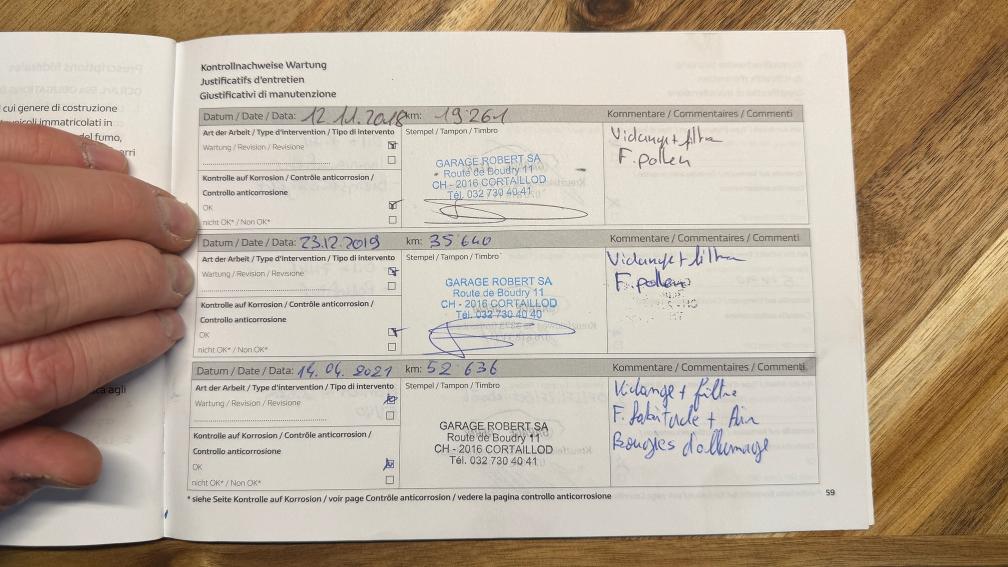 cui genere di costruzione
eicoli immatricolati in
del fumo,
Kontrollnachweise Wartung
Justificatifs d'entretien
Giustificativi di manutenzione
Datum / Date / Data: 12.11.2018 km: 19 261 Kommentare / Commentaires / Commenti
Art der Arbeit / Type d'intervention / Tipo di intervento Stempel / Tampon / Timbro Vidange + filtre
Wartung / Revision / Revisione F. pollen
GARAGE ROBERT SA
Route de Boudry 11
CH - 2016 CORTAILLOD
Tél. 032 730 40 41
Kontrolle auf Korrosion / Contrôle anticorrosion /
Controllo anticorrosione
OK
nicht OK* / Non OK*
Datum / Date / Data: 23.12.2019 km: 35 640 Kommentare / Commentaires / Commenti
Art der Arbeit / Type d'intervention / Tipo di intervento Stempel / Tampon / Timbro Vidange + filtre
Wartung / Revision / Revisione F. pollen
GARAGE ROBERT SA
Route de Boudry 11
CH - 2016 CORTAILLOD
Tél. 032 730 40 40
Kontrolle auf Korrosion / Contrôle anticorrosion /
Controllo anticorrosione
OK
nicht OK* / Non OK*
Datum / Date / Data: 14.04.2021 km: 52 636 Kommentare / Commentaires / Commenti
Art der Arbeit / Type d'intervention / Tipo di intervento Stempel / Tampon / Timbro Vidange + filtre
Wartung / Revision / Revisione F. habitacle + Air
Bougies d'allumage
GARAGE ROBERT SA
Route de Boudry 11
CH - 2016 CORTAILLOD
Tél. 032 730 40 41
Kontrolle auf Korrosion / Contrôle anticorrosion /
Controllo anticorrosione
OK
nicht OK* / Non OK*
* siehe Seite Kontrolle auf Korrosion / voir page Contrôle anticorrosion / vedere la pagina controllo anticorrosione
59